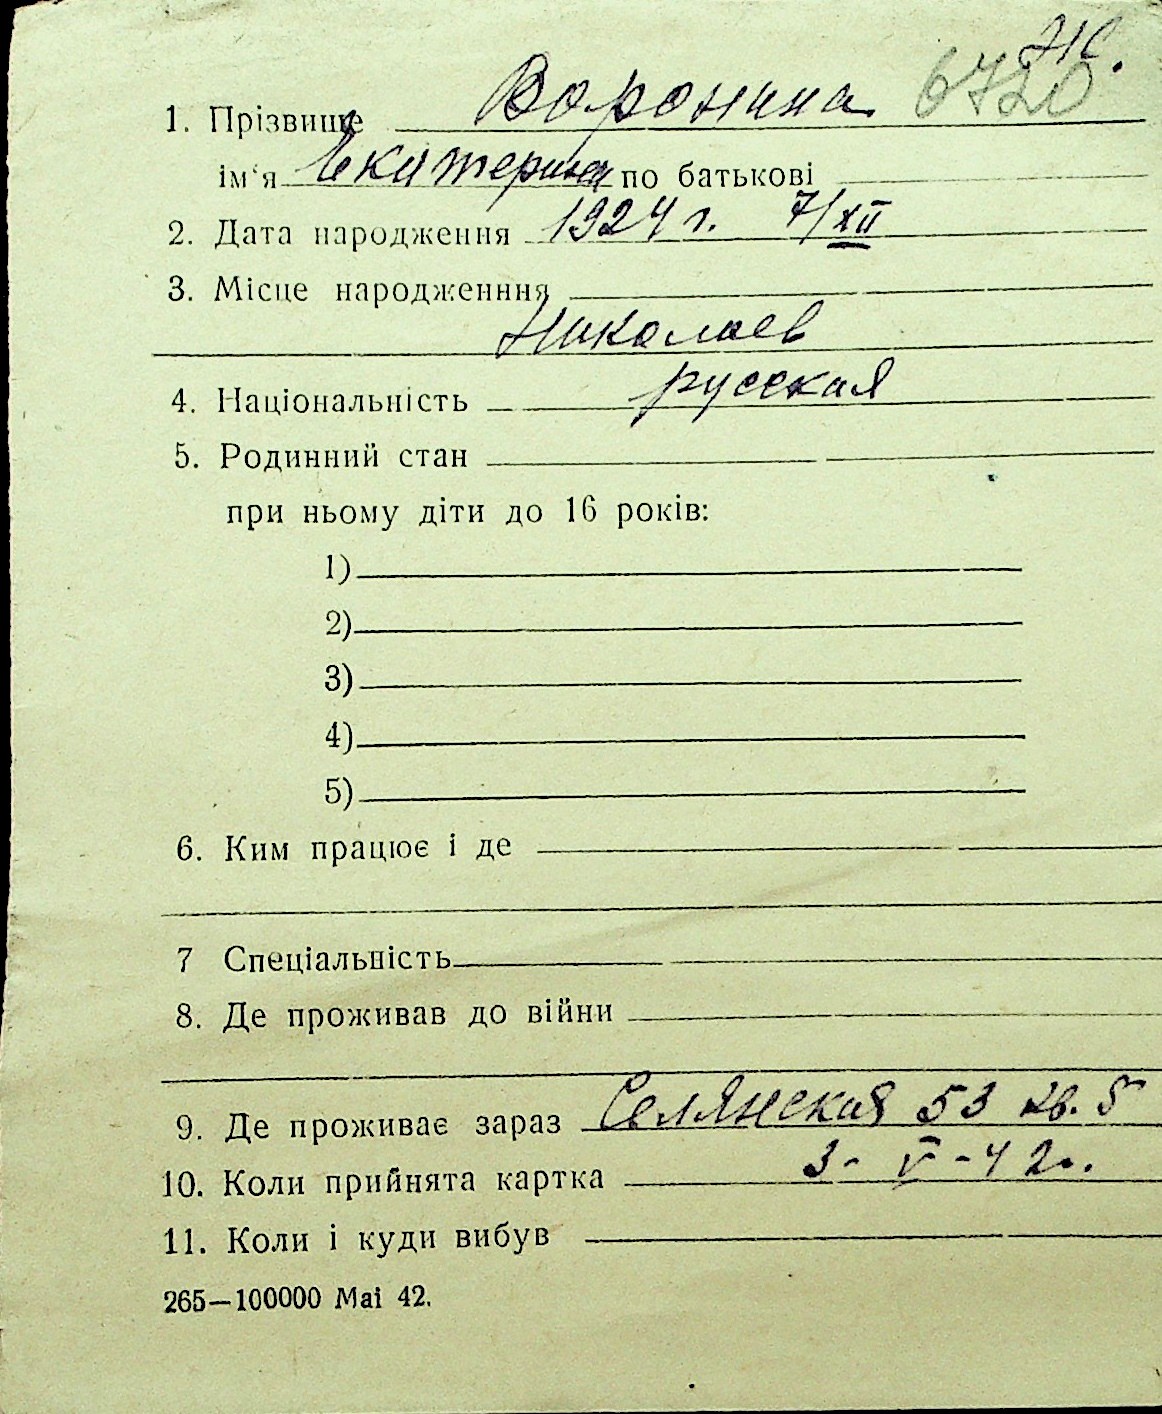 6720
1. Прізвище Воронина
ім‘я Екатерина по батькові
2. Дата народження 1924 г. 7/XII
3. Місце народженння
Николаев
4. Національність русская
5. Родинний стан
при ньому діти до 16 років:
1)
2)
3)
4)
5)
6. Ким працює і де
7 Спеціальність
8. Де проживав до війни
9. Де проживає зараз Селянская 53 кв. 5
10. Коли прийнята картка 3-V-42г.
11. Коли і куди вибув
265—100000 Маі 42.